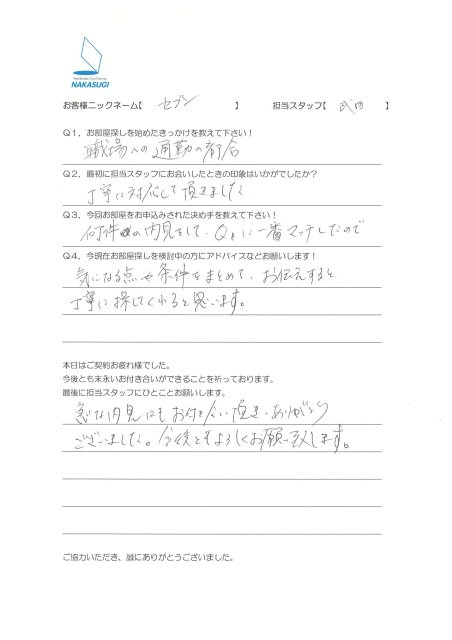 NAKASUGI
お客様ニックネーム【 セブン 】 担当スタッフ【 武田 】
Q1．お部屋探しを始めたきっかけを教えて下さい！
職場への通勤の都合
Q2．最初に担当スタッフにお会いしたときの印象はいかがでしたか？
丁寧に対応して頂きました
Q3．今回お部屋をお申込みされた決め手を教えて下さい！
何件 の内見をして、 に一番マッチしたので
Q4．今現在お部屋探しを検討中の方にアドバイスなどお願いします！
気になる点や条件をまとめて、お伝えすると
丁寧に探してくれると思います。
本日はご契約お疲れ様でした。
今後とも末永いお付き合いができることを祈っております。
最後に担当スタッフにひとことお願いします。
急な内見にもお付き合い頂き、ありがとう
ございました。今後ともよろしくお願い致します。
ご協力いただき、誠にありがとうございました。